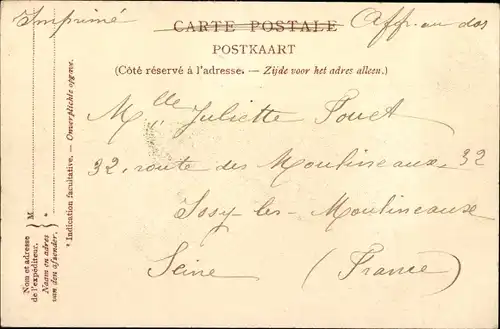 Imprimé
CARTE POSTALE
Aff. au dos
POSTKAART
(Côté réservé à l'adresse. — Zijde voor het adres alleen.)
Mlle Juliette Fouet
32, route des Moulineaux, 32
Issy-les-Moulineaux
Seine (France)
Nom et adresse
de l'expéditeur.
Naam en adres
van den afzender.
M.
*
* Indication facultative. — Onverplichte opgave.